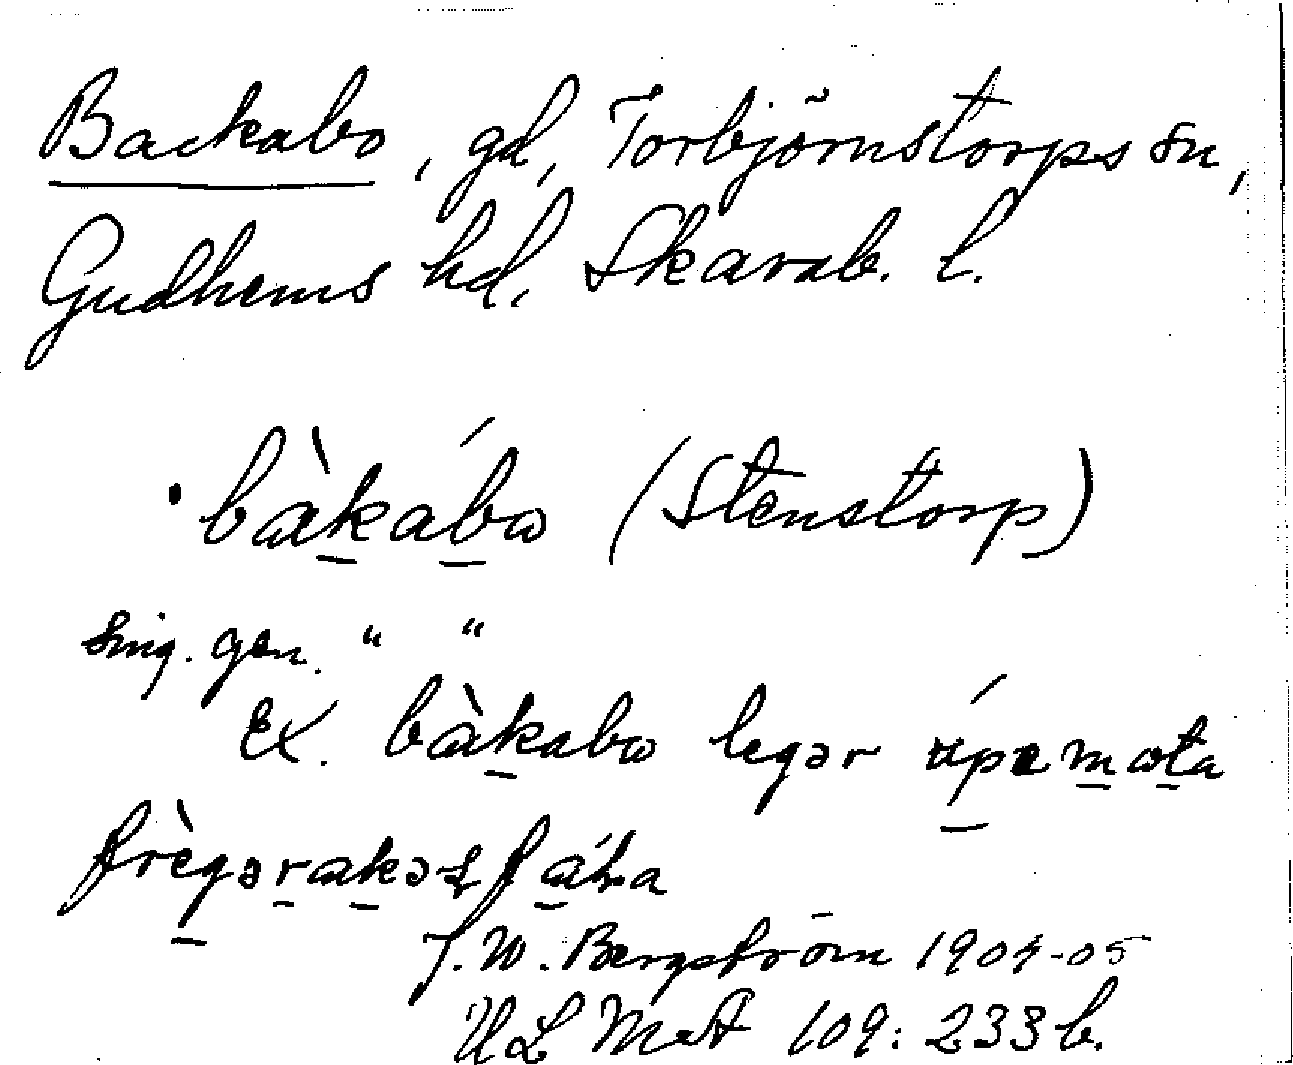 Backabo, gd, Torbjörnstorps sn,
Gudhems hd, Skarab. l.
bàkábo (Stenstorp)
Sing. gen. " "
Ex. bàkabo legər úpemota
J. W. Bergström 1904-05
ULMA 109: 233 b.